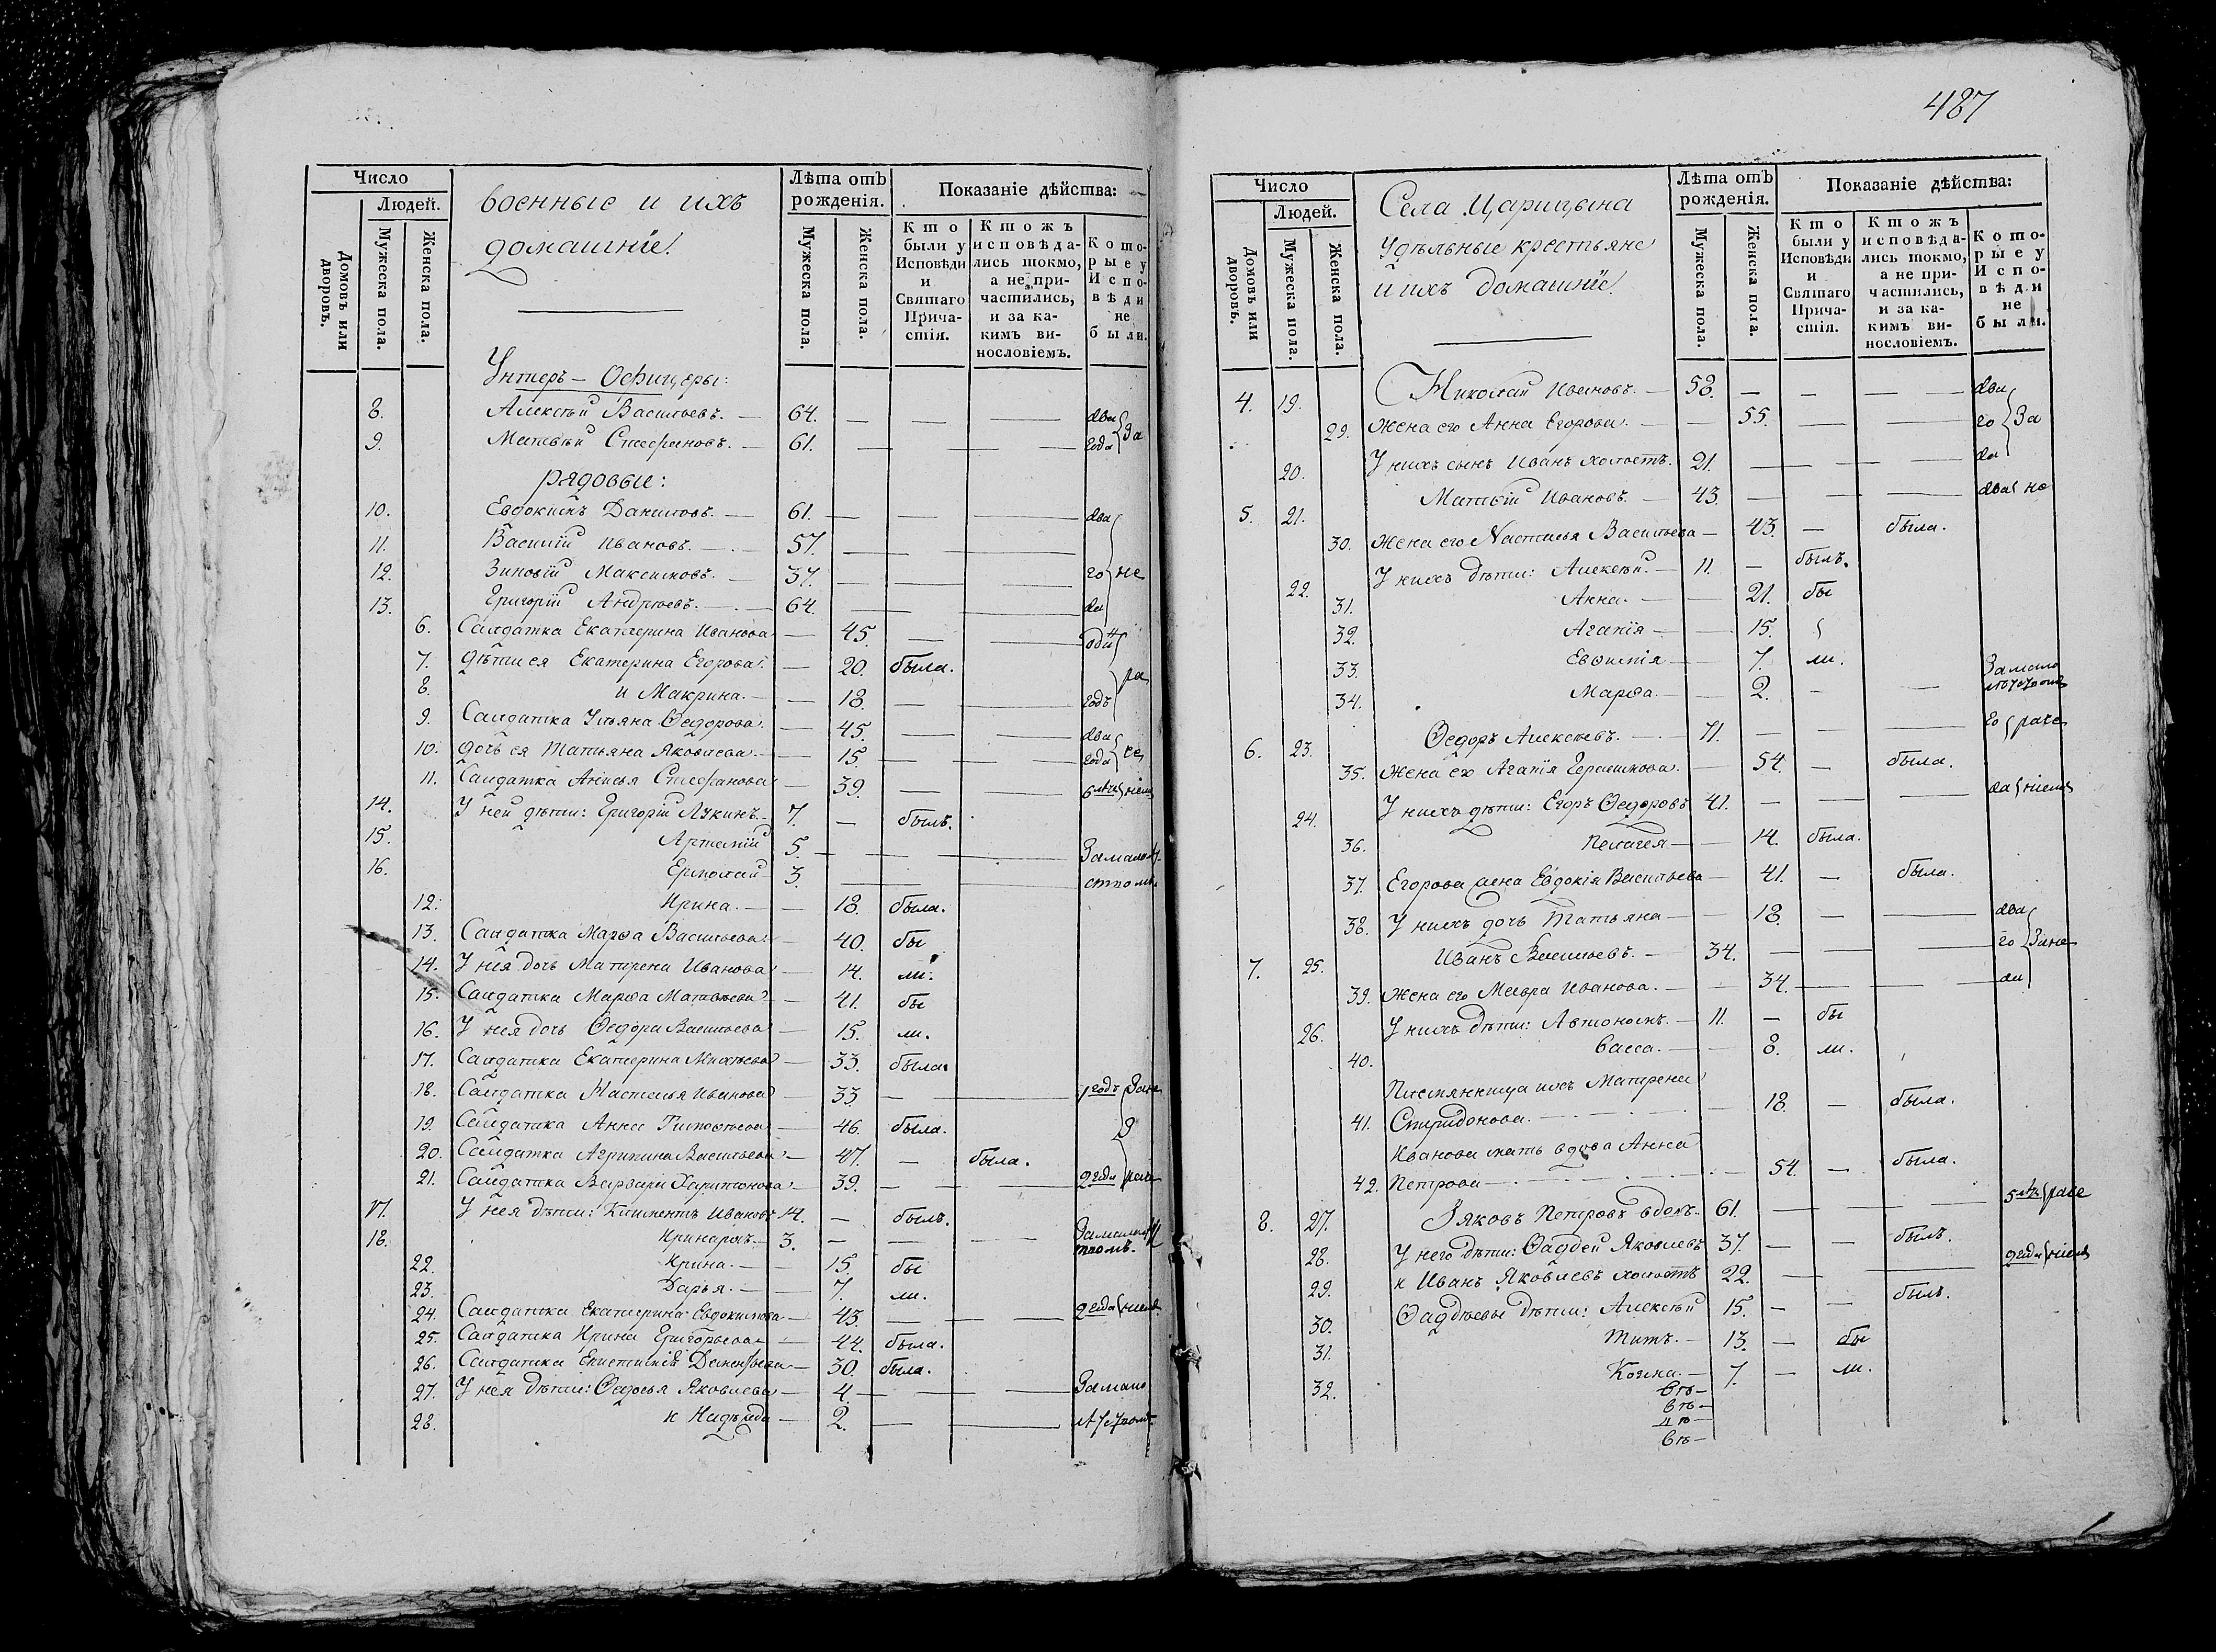 487
Число
Людей.
Домовъ или дворовъ.
Мужеска пола.
Женска пола.
военные и ихъ
домашніе.
Лѣта отъ рожденія.
Мужеска пола.
Женска пола.
Показаніе дѣйства:
Кто были у Исповѣди и Святаго Причастія.
Ктожъ исповѣдались токмо, а не причастились, и за какимъ винословіемъ.
Которые у Исповѣди не были.
Унтеръ-Офицеры:
8. Алексѣй Васильевъ. 64. два
9. Матвѣй Стефановъ. 61. года За
рядовые:
10. Евдокимъ Даниловъ. 61. два
11. Василій Ивановъ. 57.
12. Зиновій Максимовъ. 37. го не
13. Григорій Андреевъ. 64. да
6. Салдатка Екатерина Иванова 45. один
7. дѣти ея Екатерина Егорова. 20. была.
8. и Макрина. 18. годъ ра
9. Салдатка Ульяна Ѳедорова. 45. два
10. дочь ея Татьяна Яковлева 15. года
11. Салдатка Анисья Стефанова 39. 6 лѣтъ ніем
14. У ней дѣти: Григорій Лукинъ. 7. былъ.
15. Артемій 5. За мало
16. Ермолай 3.
12. Ирина. 18. была.
13. Салдатка Марѳа Васильева. 40. бы
14. У нея дочь Матрена Иванова 14. ли.
15. Салдатка Марѳа Матвѣева 41. бы
16. У нея дочь Ѳедора Васильева 15. ли.
17. Салдатка Екатерина Михѣева 33. была.
18. Салдатка Настасья Иванова 33. 1 годъ
19. Салдатка Анна Тимоѳеева 46. была.
20. Салдатка Агрипина Васильева 47. была.
21. Салдатка Варвара Харитонова 39. 2 года
17. У нея дѣти: Климентъ Ивановъ 14. былъ.
18. 3.
22. Ирина. 15. бы
23. Дарья. 7. ли.
24. Салдатка Екатерина Евдокимова 43. 2 года ніем
25. Салдатка Ирина Григорьева 44. была.
26. Салдатка 30. была.
27. У нея дѣти: Ѳедосья Яковлева 4. За мало
28. и Надежда 2.
Число
Людей.
Домовъ или дворовъ.
Мужеска пола.
Женска пола.
Села Царицына
Удѣльные крестьяне
и ихъ домашніе.
Лѣта отъ рожденія.
Мужеска пола.
Женска пола.
Показаніе дѣйства:
Кто были у Исповѣди и Святаго Причастія.
Ктожъ исповѣдались токмо, а не причастились, и за какимъ винословіемъ.
Которые у Исповѣди не были.
4. 19. Николай Ивановъ. 58. два
29. Жена его Анна Егорова. 55. го За
20. У нихъ сынъ Иванъ холостъ. 21. да
5. 21. Матвѣй Ивановъ. 43. два не
30. Жена его Настасья Васильева 43. была.
22. У нихъ дѣти: Алексѣй. 11. былъ.
31. Анна. 21. бы
32. Агапія 15.
33. Евѳимія 7. ли.
34. Марѳа. 2. За мало
6. 23. Ѳедоръ Алексѣевъ. 71. го
35. Жена его Агапія Герасимова. 54. была.
24. У нихъ дѣти: Егоръ Ѳедоровъ 41. да ніем
36. Пелагея 14. была.
37. Егорова жена Евдокія Васильева 41. была.
38. У нихъ дочь Татьяна 18. два
7. 25. Иванъ Васильевъ. 34. го За не
39. Жена его Мавра Иванова. 34. да
26. У нихъ дѣти: Автономъ. 11. бы
40. Васса. 8. ли.
ихъ Матрена
41. Спиридонова. 18. была.
Иванова мать вдова Анна
42. Петрова 54. была.
8. 27. Яковъ Петровъ вдовъ. 61. 5 лѣтъ
28. У него дѣти: Ѳаддей Яковлевъ 37. былъ.
29. и Иванъ Яковлевъ холостъ 22. 2 года ніем
30. Ѳаддѣевы дѣти: Алексѣй 15. былъ.
31. Титъ. 13. бы
32. Козма. 7. ли.